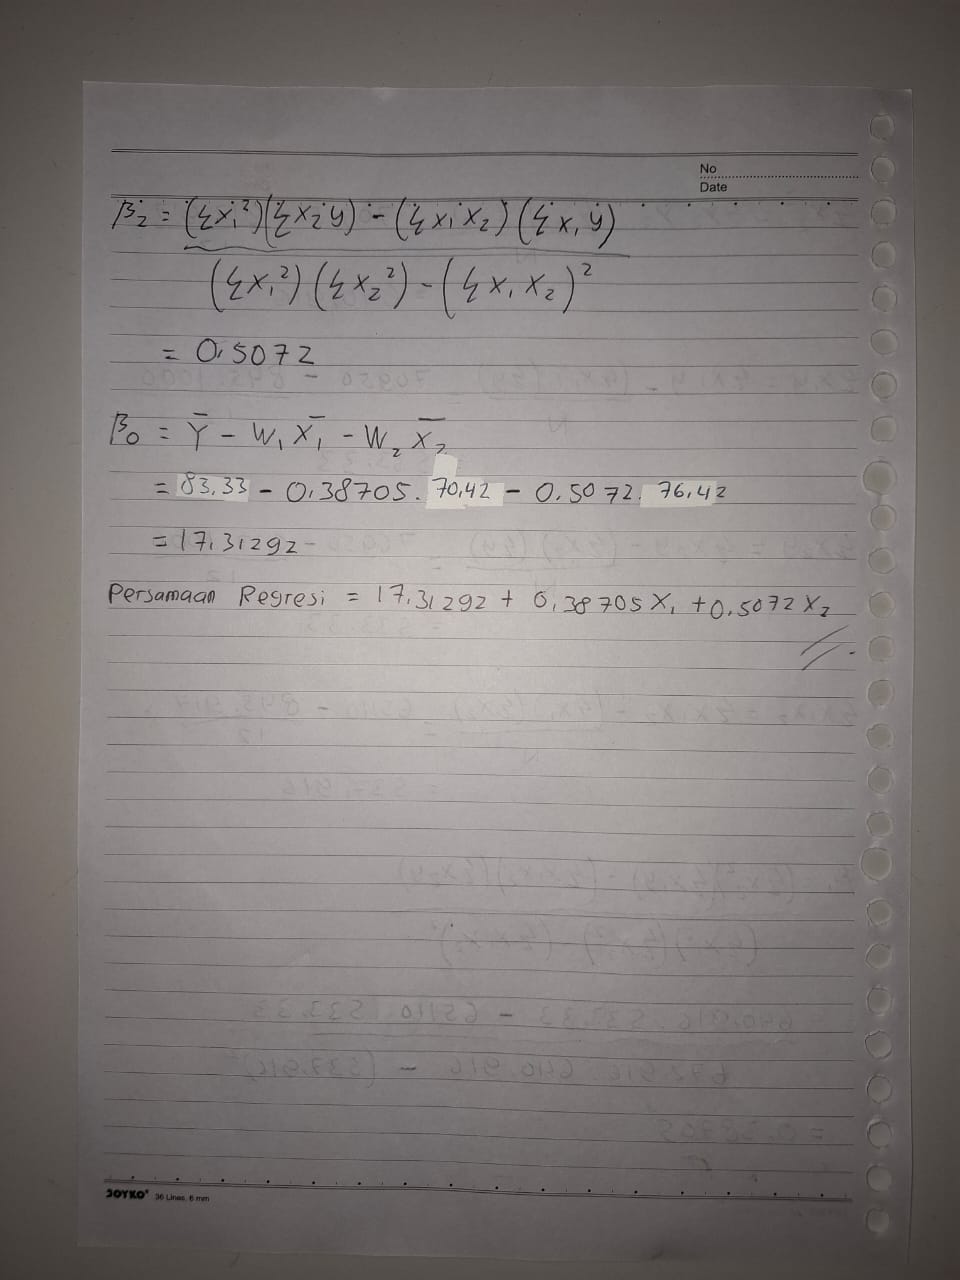 No
Date
β₂ = (Σx₁²)(Σx₂y) - (Σx₁x₂)(Σx₁y)
(Σx₁²)(Σx₂²) - (Σx₁x₂)²
= 0,5072
β₀ = Ȳ - W₁X̄₁ - W₂X̄₂
= 83,33 - 0,38705. 70,42 - 0,5072. 76,42
= 17,31292
Persamaan Regresi = 17,31292 + 0,38705X₁ + 0,5072X₂
JOYKO 36 Lines, 6 mm